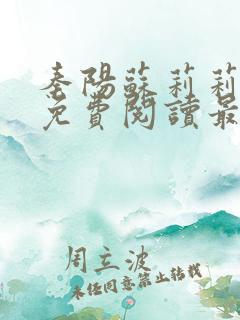 秦陽蘇莉莉
免費閱讀最
周立波
未经同意禁止转载